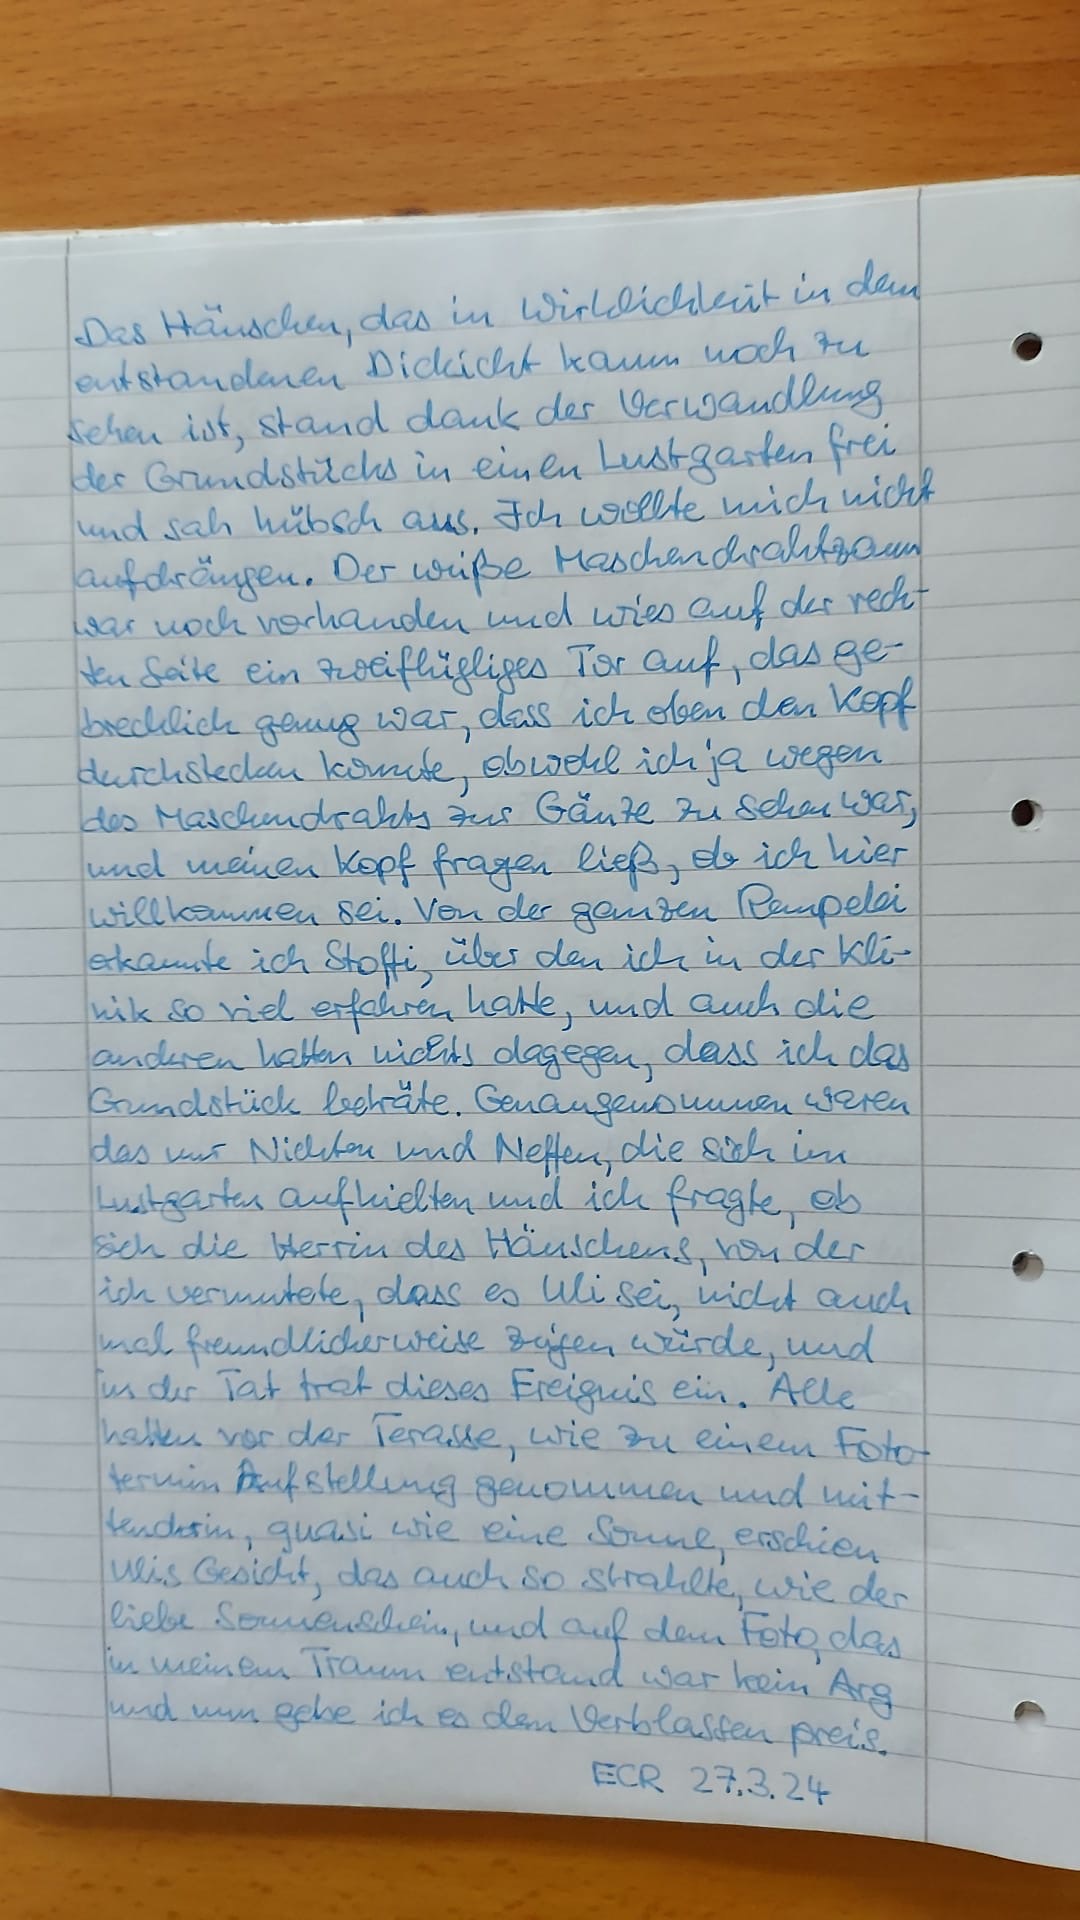 Das Häuschen, das in Wirklichkeit in dem
entstandenen Dickicht kaum noch zu
sehen ist, stand dank der Verwandlung
der Grundstücks in einen Lustgarten frei
und sah hübsch aus. Ich wollte mich nicht
aufdrängen. Der weiße Maschendrahtzaun
war noch vorhanden und wies auf der rech-
ten Seite ein zweiflügliges Tor auf, das ge-
brechlich genug war, dass ich oben den Kopf
durchstecken konnte, obwohl ich ja wegen
des Maschendrahts zur Gänze zu sehen war,
und meinen Kopf fragen ließ, ob ich hier
willkommen sei. Von der ganzen
erkannte ich Stoffi, über den ich in der Kli-
nik so viel erfahren hatte, und auch die
anderen hatten nichts dagegen, dass ich das
Grundstück beträte. Genaugenommen waren
das nur Nichten und Neffen, die sich im
Lustgarten aufhielten und ich fragte, ob
sich die Herrin des Häuschens, von der
ich vermutete, dass es Uli sei, nicht auch
mal freundlicherweise zeigen würde, und
in der Tat trat dieses Ereignis ein. Alle
hatten vor der Terasse, wie zu einem Foto-
termin Aufstellung genommen und mit-
tenderin, quasi wie eine Sonne, erschien
Ulis Gesicht, das auch so strahlte, wie der
liebe Sonnenschein, und auf dem Foto, das
in meinem Traum entstand war kein Arg
und nun gebe ich es dem Verblassen preis.
ECR 27.3.24